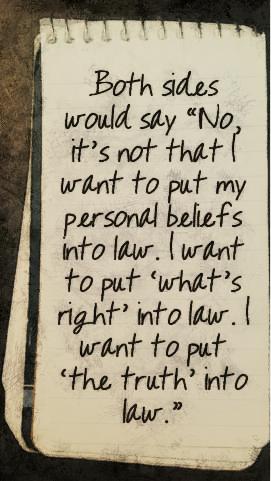 Both sides
would say “No,
it’s not that I
want to put my
personal beliefs
into law. I want
to put ‘what’s
right’ into law. I
want to put
‘the truth’ into
law.”